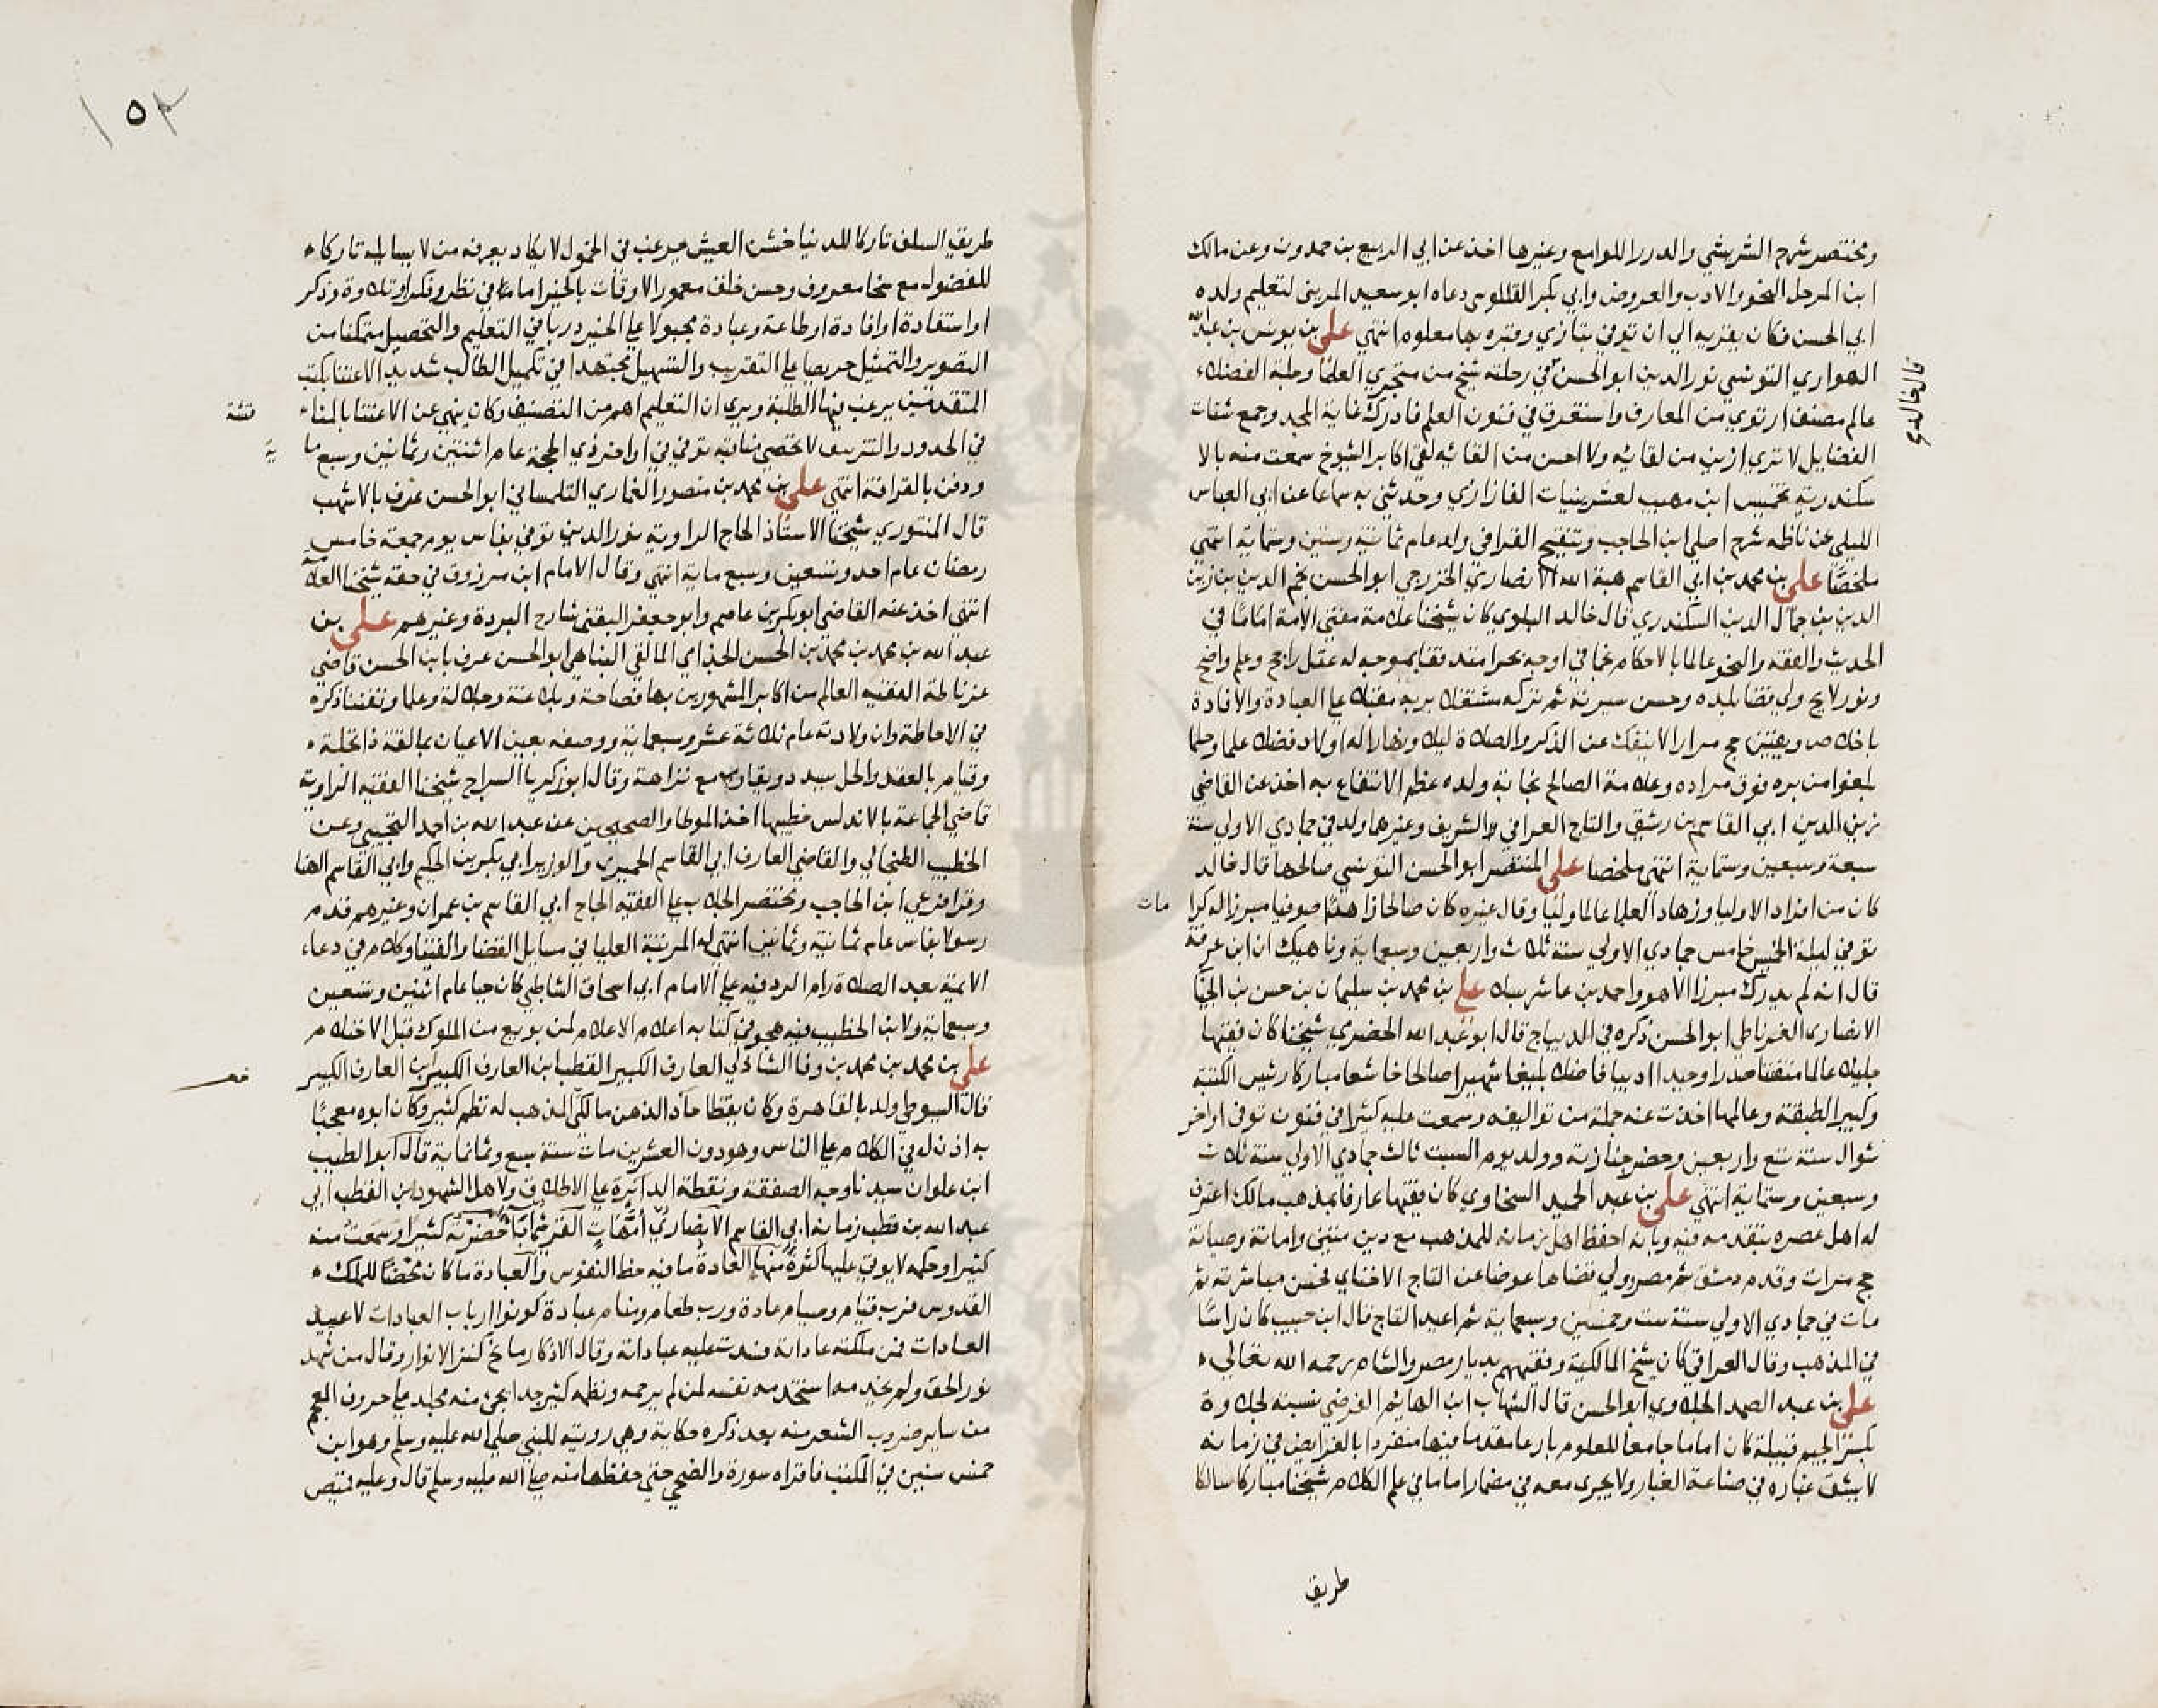 ومختصر شرح الشريشي والدرر اللوامع وغيرها اخذ عن ابي الربيع بن حمدون وعن مالك
ابن المرحل النحو والادب والعروض وابي بكر القللوسي دعاه ابو سعيد المريني لتعليم ولده
ابي الحسن فكان يقريه الي ان توفي بتازي وقبره بها معلوم انتهي علي بن يونس بن عبد الله
الهواري التونسي نور الدين ابو الحسن في رحلته شيخ من متخيري العلما وجلة الفضلاء
قال خالد
عالم مصنف ارتوي من المعارف واستغرق في فنون العلم فادرك غاية المجد وجمع شتات
الفضايل لا تري ازين من لقائه ولا احسن من القائه لقي اكابر الشيوخ سمعت منه بالا
سكندرية تخميس ابن مهيب لعشرينيات الفازازي وحدثني به سماعا عن ابي العباس
الليلي عن ناظمه شرح اصلي ابن الحاجب وتنقيح القرافي ولد عام ثمانية وستين وستماية انتهي
ملخصا علي بن محمد بن ابي القاسم هبة الله الانصاري الخزرجي ابو الحسن نجم الدين بن زين
الدين بن جمال الدين السكندري قال خالد البلوي كان شيخنا علامة مفتي الامة اماما في
الحديث والفقه والنحو عالما بالاحكام نجا في اوجه بحرا متدفقا بموجه له عقل راجح وعلم واضح
ونور لايح ولي قضا بلده وحسن سيرته ثم تركه مشتغلا بربه مقبلا علي العبادة والافادة
باخلاص ويقين حج مرارا لا ينفك عن الذكر والصلاة ليلا ونهارا له اولاد فضلا علما وحلما
بلغوا من بره فوق مراده وعلامة الصالح نجابة ولده عظم الانتفاع به اخذ عن القاضي
زين الدين ابي القاسم بن رشيق والتاج العراقي والشريف وغيرهما ولد في جمادي الاولي سنة
سبعة وسبعين وستماية انتهي ملخصا علي المنتصر ابو الحسن التونسي صالحها قال خالد
كان من افراد الاوليا وزهاد العلما عالما وليا وقال غيره كان صالحا زاهدا صوفيا مبرزا لدكرا
مات
توفي ليلة الخميس خامس جمادي الاولي سنة ثلاث واربعين وسبعماية وناهيك ان ابن عرفة
قال انه لم يدرك مبرزا الا هو واحمد بن عاشر بسلا علي بن محمد بن سليمان بن حسن بن الجيا
الانصاري الغرناطي ابو الحسن ذكره في الديباج قال ابو عبد الله الحضرمي شيخنا كان فقيها
جليلا عالما متفننا صدرا وحيدا اديبا فاضلا بليغا شهيرا صالحا خاشعا مباركا رئيس الكتبة
وكبير الطبقة وعالمها اخذت عنه جملة من تواليفه وسمعت عليه كثيرا في فنون توفي اواخر
شوال سنة تسع واربعين وحضر جنازته وولد يوم السبت ثالث جمادي الاولي سنة ثلاث
وسبعين وستماية انتهي علي بن عبد الحميد السخاوي كان فقيها عارفا بمذهب مالك اعترف
له اهل عصره بتقدمه فيه وبانه احفظ اهل زمانه للمذهب مع دين متين وامانة وصيانة
حج مرات وقدم دمشق ثم مصر وولي قضاها عوضا عن التاج الاخناي لحسن مباشرته ثم
مات في جمادي الاولي سنة ست وخمسين وسبعماية ثم اعيد التاج قال ابن حبيب كان راسا
في المذهب وقال العراقي كان شيخ المالكية وفقيههم بديار مصر والشام رحمه الله تعالي
علي بن عبد الصمد الجلاوي ابو الحسن قال الشهاب ابن الهائم الفرضي نسبة لجلاوة
بكسر الجيم قبيلة كان اماما جامعا للعلوم بارعا مقدما فيها منفردا بالفرايض في زمانه
لا يشق غباره في صناعة الغبار ولا يجري معه في مضمار اماما في علم الكلام شيخنا مباركا سالكا
طريق
١٥٢
طريق السلف تاركا للدنيا خشن العيش يرغب في الخمول لا يكاد يعرفه من لا يسايله تاركا
للفضول مع سخا معروف وحسن خلق معمور الاوقات بالخير اما في نظر وفكر او تلاوة وذكر
او استفادة او افادة او طاعة وعبادة مجبولا علي الخير دربا في التعليم والتحصيل متمكنا من
التصوير والتمثيل حريصا علي التقريب والتسهيل مجتهدا في تكميل الطالب شديد الاعتنا بكتب
المتقدمين يرغب فيها الطلبة ويري ان التعليم اهم من التصنيف وكان ينهي عن الاعتنا بالمنا
قشة
في الحدود والتزييف لا تحصي مناقبه توفي في اواخر ذي الحجة عام اثنتين وثمانين وسبع ما
ية
ودفن بالقرافة انتهي علي بن محمد بن منصور الغماري التلمساني ابو الحسن عرف بالاشهب
قال المنتوري شيخنا الاستاذ الحاج الراوية نور الدين توفي بفاس يوم جمعة خامس
رمضان عام احد وتسعين وسبع ماية انتهي وقال الامام ابن مرزوق في حقه شيخنا العلامة
انتهي اخذ عنه القاضي ابو بكر بن عاصم وابو جعفر البقني شارح البردة وغيرهم علي بن
عبد الله بن محمد بن محمد بن الحسن الجذامي المالقي النباهي ابو الحسن عرف بابن الحسن قاضي
غرناطة الفقيه العالم من اكابر المشهورين بها فصاحة وبلاغة وجلالة وعلما وتفننا ذكره
في الاحاطة وان ولادته عام ثلاثة عشر وسبعماية ووصفه بعين الاعيان بمالقة ذا تخلة
وقيام بالعقد والحل يسدد ويقارب مع نزاهة وقال ابو زكريا السراج شيخنا الفقيه الراوية
قاضي الجماعة بالاندلس خطيبها اخذ الموطا والصحيحين عن عبد الله بن احمد التجيبي وعن
الخطيب الطنجالي والقاضي العارف ابي القاسم الحميري والوزير ابي بكر بن الحكيم وابي القاسم الغا
وقرا فرعي ابن الحاجب ومختصر الجلاب علي الفقيه الحاج ابي القاسم بن عمران وغيرهم قدم
رسولا بفاس عام ثمانية وثمانين انتهي له المرتبة العليا في مسايل القضا والفتيا وكلام في دعاء
الايمة بعد الصلاة رام الرد فيه علي الامام ابي اسحاق الشاطبي كان حيا عام اثنين وتسعين
وسبعماية ولابن الخطيب فيه هجو في كتابه اعلام الاعلام لمن بويع من الملوك قبل الاحتلام
علي بن محمد بن محمد بن وفا الشاذلي العارف الكبير القطب ابن العارف الكبير ابن العارف الكبير
قال السيوطي ولد بالقاهرة وكان يقظا حاد الذهن مالكي المذهب له نظم كثير وكان ابوه معجبا
به اذن له في الكلام علي الناس وهو دون العشرين مات سنة سبع وثمانماية قال ابو الطيب
ابن علوان سيدنا وجه الصفقة ونقطة الدايرة علي الاطلاق ولاهل الشهود ابن القطب ابي
عبد الله بن قطب زمانه ابي القاسم الانصاري امهات حضرته كثيرا وسمعت منه
كثيرا وحكمه لا يوتي عليها كثرة منها العادة ما فيه حظ النفوس والعبادة ما كان محضا للملك
القدوس فرب قيام وصيام عادة ورب طعام ومنام عبادة كونوا ارباب العبادات لا عبيد
العادات فمن ملكته عاداته فسدت عليه عباداته وقال الاذكار مفاتح كنز الانوار وقال من شهد
نور الحق ولم يخدمه استخدمه نفسه لمن لم يرحمه ونظمه كثير جدا يجي منه مجلد علي حروف المعجم
من ساير ضروب الشعر منه بعد ذكره حكاية وهي رويته للنبي صلي الله عليه وسلم وهو ابن
خمس سنين في المكتب فاقراه سورة والضحي حتي حفظها منه صلي الله عليه وسلم قال وعليه قميص